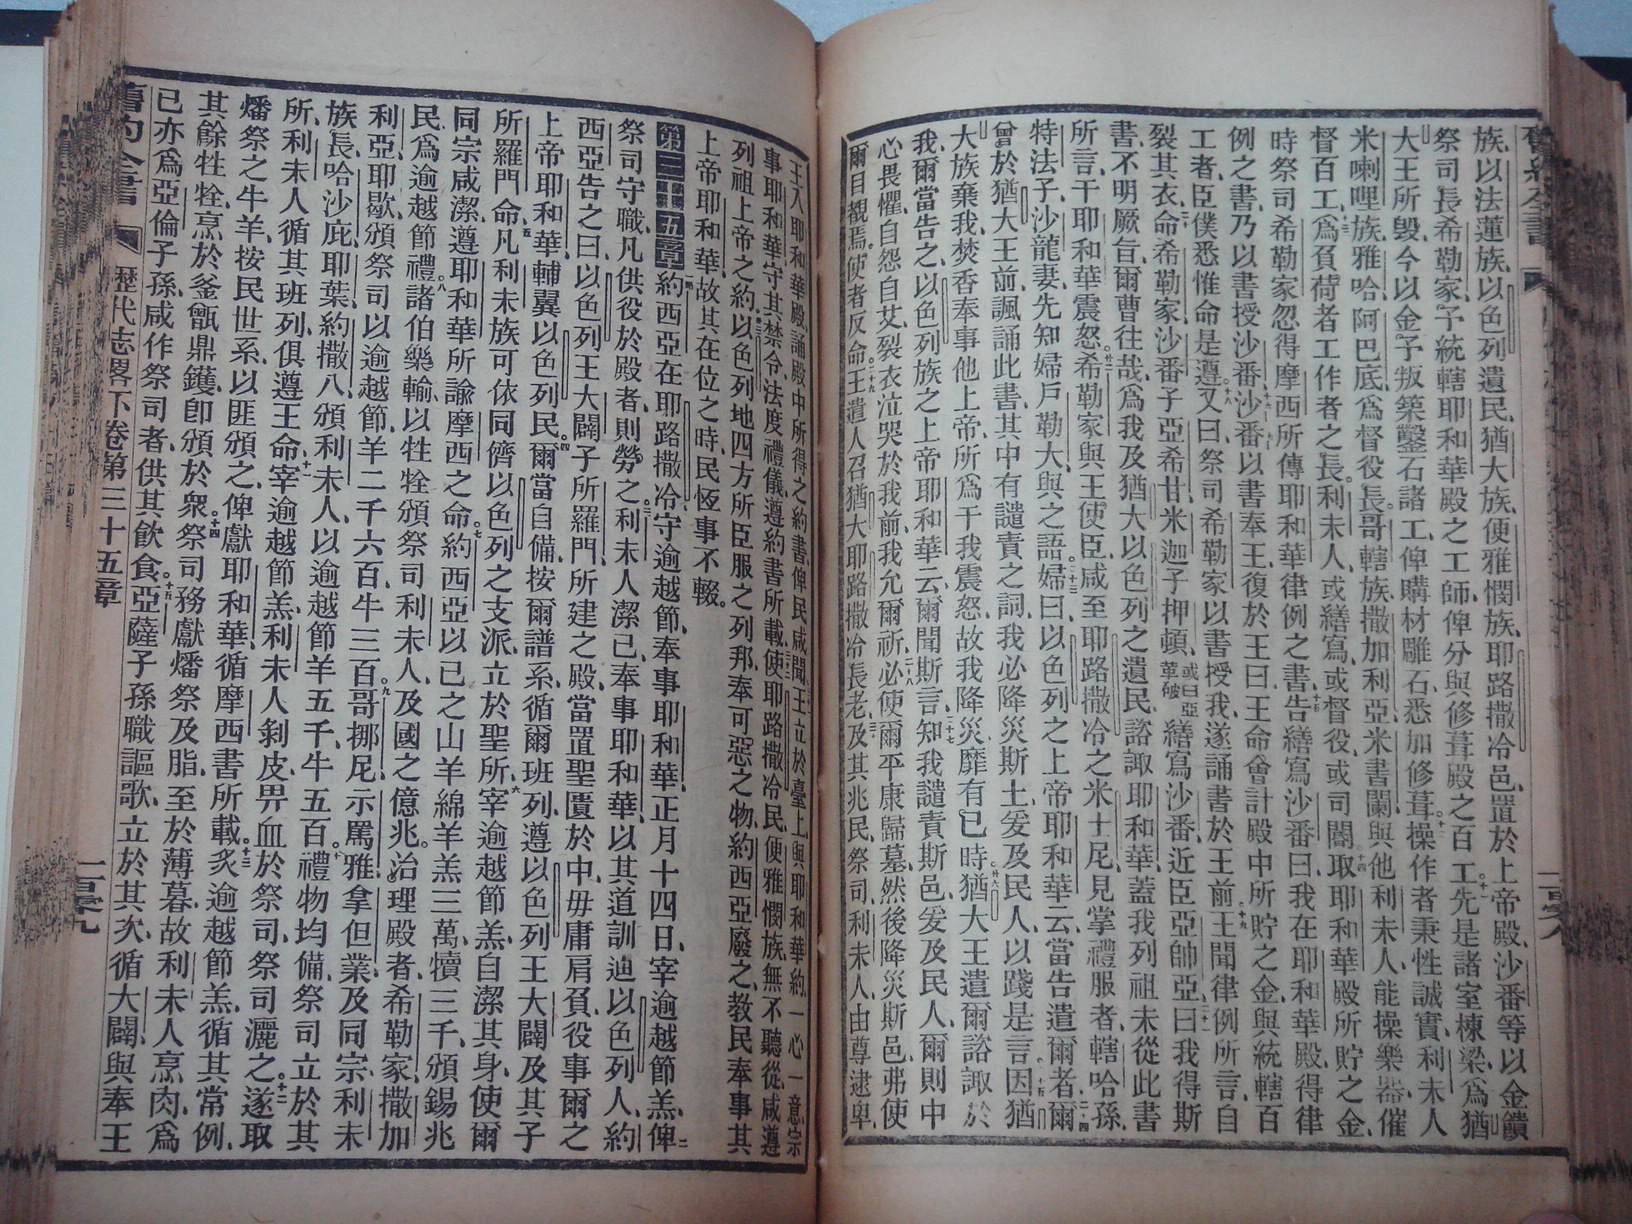 舊約全書
族以法蓮族以色列遺民猶大族便雅憫族耶路撒冷邑置於上帝殿沙番等以金饋
祭司長希勒家予統轄耶和華殿之工師俾分與修葺殿之百工十一先是諸室棟梁爲猶
大王所毀今以金予叛築鑿石諸工俾購材雕石悉加修葺十二操作者秉性誠實利未人
米喇哩族雅哈阿巴底爲督役長哥轄族撒加利亞米書闌與他利未人能操樂器催
督百工十三爲負荷者工作者之長利未人或繕寫或督役或司閽十四取耶和華殿所貯之金
時祭司希勒家忽得摩西所傳耶和華律例之書十五告繕寫沙番曰我在耶和華殿得律
例之書乃以書授沙番十六沙番以書奉王復於王曰王命會計殿中所貯之金與統轄百
工者臣僕悉惟命是遵十八又曰祭司希勒家以書授我遂誦書於王前十九王聞律例所言自
裂其衣二十命希勒家沙番子亞希甘米迦子押頓或曰亞革破繕寫沙番近臣亞帥亞曰二十一我得斯
書不明厥旨爾曹往哉爲我及猶大以色列之遺民諮諏耶和華蓋我列祖未從此書
所言干耶和華震怒二十二希勒家與王使臣咸至耶路撒冷之米士尼見掌禮服者轄哈孫
特法子沙龍妻先知婦戶勒大與之語二十三婦曰以色列之上帝耶和華云當告遣爾者二十四爾
曾於猶大王前諷誦此書其中有譴責之詞我必降災斯土爰及民人以踐是言二十五因猶
大族棄我焚香奉事他上帝所爲干我震怒故我降災靡有已時二十六猶大王遣爾諮諏於
我爾當告之以色列族之上帝耶和華云爾聞斯言二十七知我譴責斯邑爰及民人爾則中
心畏懼自怨自艾裂衣泣哭於我前我允爾祈二十八必使爾平康歸墓然後降災斯邑弗使
爾目覩焉使者反命二十九王遣人召猶大耶路撒冷長老三十及其兆民祭司利未人由尊逮卑
王入耶和華殿誦殿中所得之約書俾民咸聞三十一王立於臺上與耶和華約一心一意宗
事耶和華守其禁令法度禮儀遵約書所載三十二使耶路撒冷民便雅憫族無不聽從咸遵
列祖上帝之約三十三以色列地四方所臣服之列邦奉可惡之物約西亞廢之教民奉事其
上帝耶和華故其在位之時民恆事不輟
第三十五章一約西亞在耶路撒冷守逾越節奉事耶和華正月十四日宰逾越節羔二俾
祭司守職凡供役於殿者則勞之三利未人潔己奉事耶和華以其道訓迪以色列人約
西亞告之曰以色列王大闢子所羅門所建之殿當置聖匱於中毋庸肩負役事爾之
上帝耶和華輔翼以色列民四爾當自備按爾譜系循爾班列遵以色列王大闢及其子
所羅門命五凡利未族可依同儕以色列之支派立於聖所六宰逾越節羔自潔其身使爾
同宗咸潔遵耶和華所諭摩西之命七約西亞以己之山羊綿羊羔三萬犢三千頒錫兆
民爲逾越節禮八諸伯樂輸以牲牷頒祭司利未人及國之億兆治理殿者希勒家撒加
利亞耶歇頒祭司以逾越節羊二千六百牛三百九哥挪尼示罵雅拿但業及同宗利未
族長哈沙庇耶葉約撒八頒利未人以逾越節羊五千牛五百十禮物均備祭司立於其
所利未人循其班列俱遵王命十一宰逾越節羔利未人剝皮畀血於祭司祭司灑之十二遂取
燔祭之牛羊按民世系以匪頒之俾獻耶和華循摩西書所載十三炙逾越節羔循其常例
其餘牲牷烹於釜甑鼎鑊卽頒於衆十四祭司務獻燔祭及脂至於薄暮故利未人烹肉爲
己亦爲亞倫子孫咸作祭司者供其飲食十五亞薩子孫職謳歌立於其次循大闢與奉王
舊約全書 歷代志畧下卷第三十五章